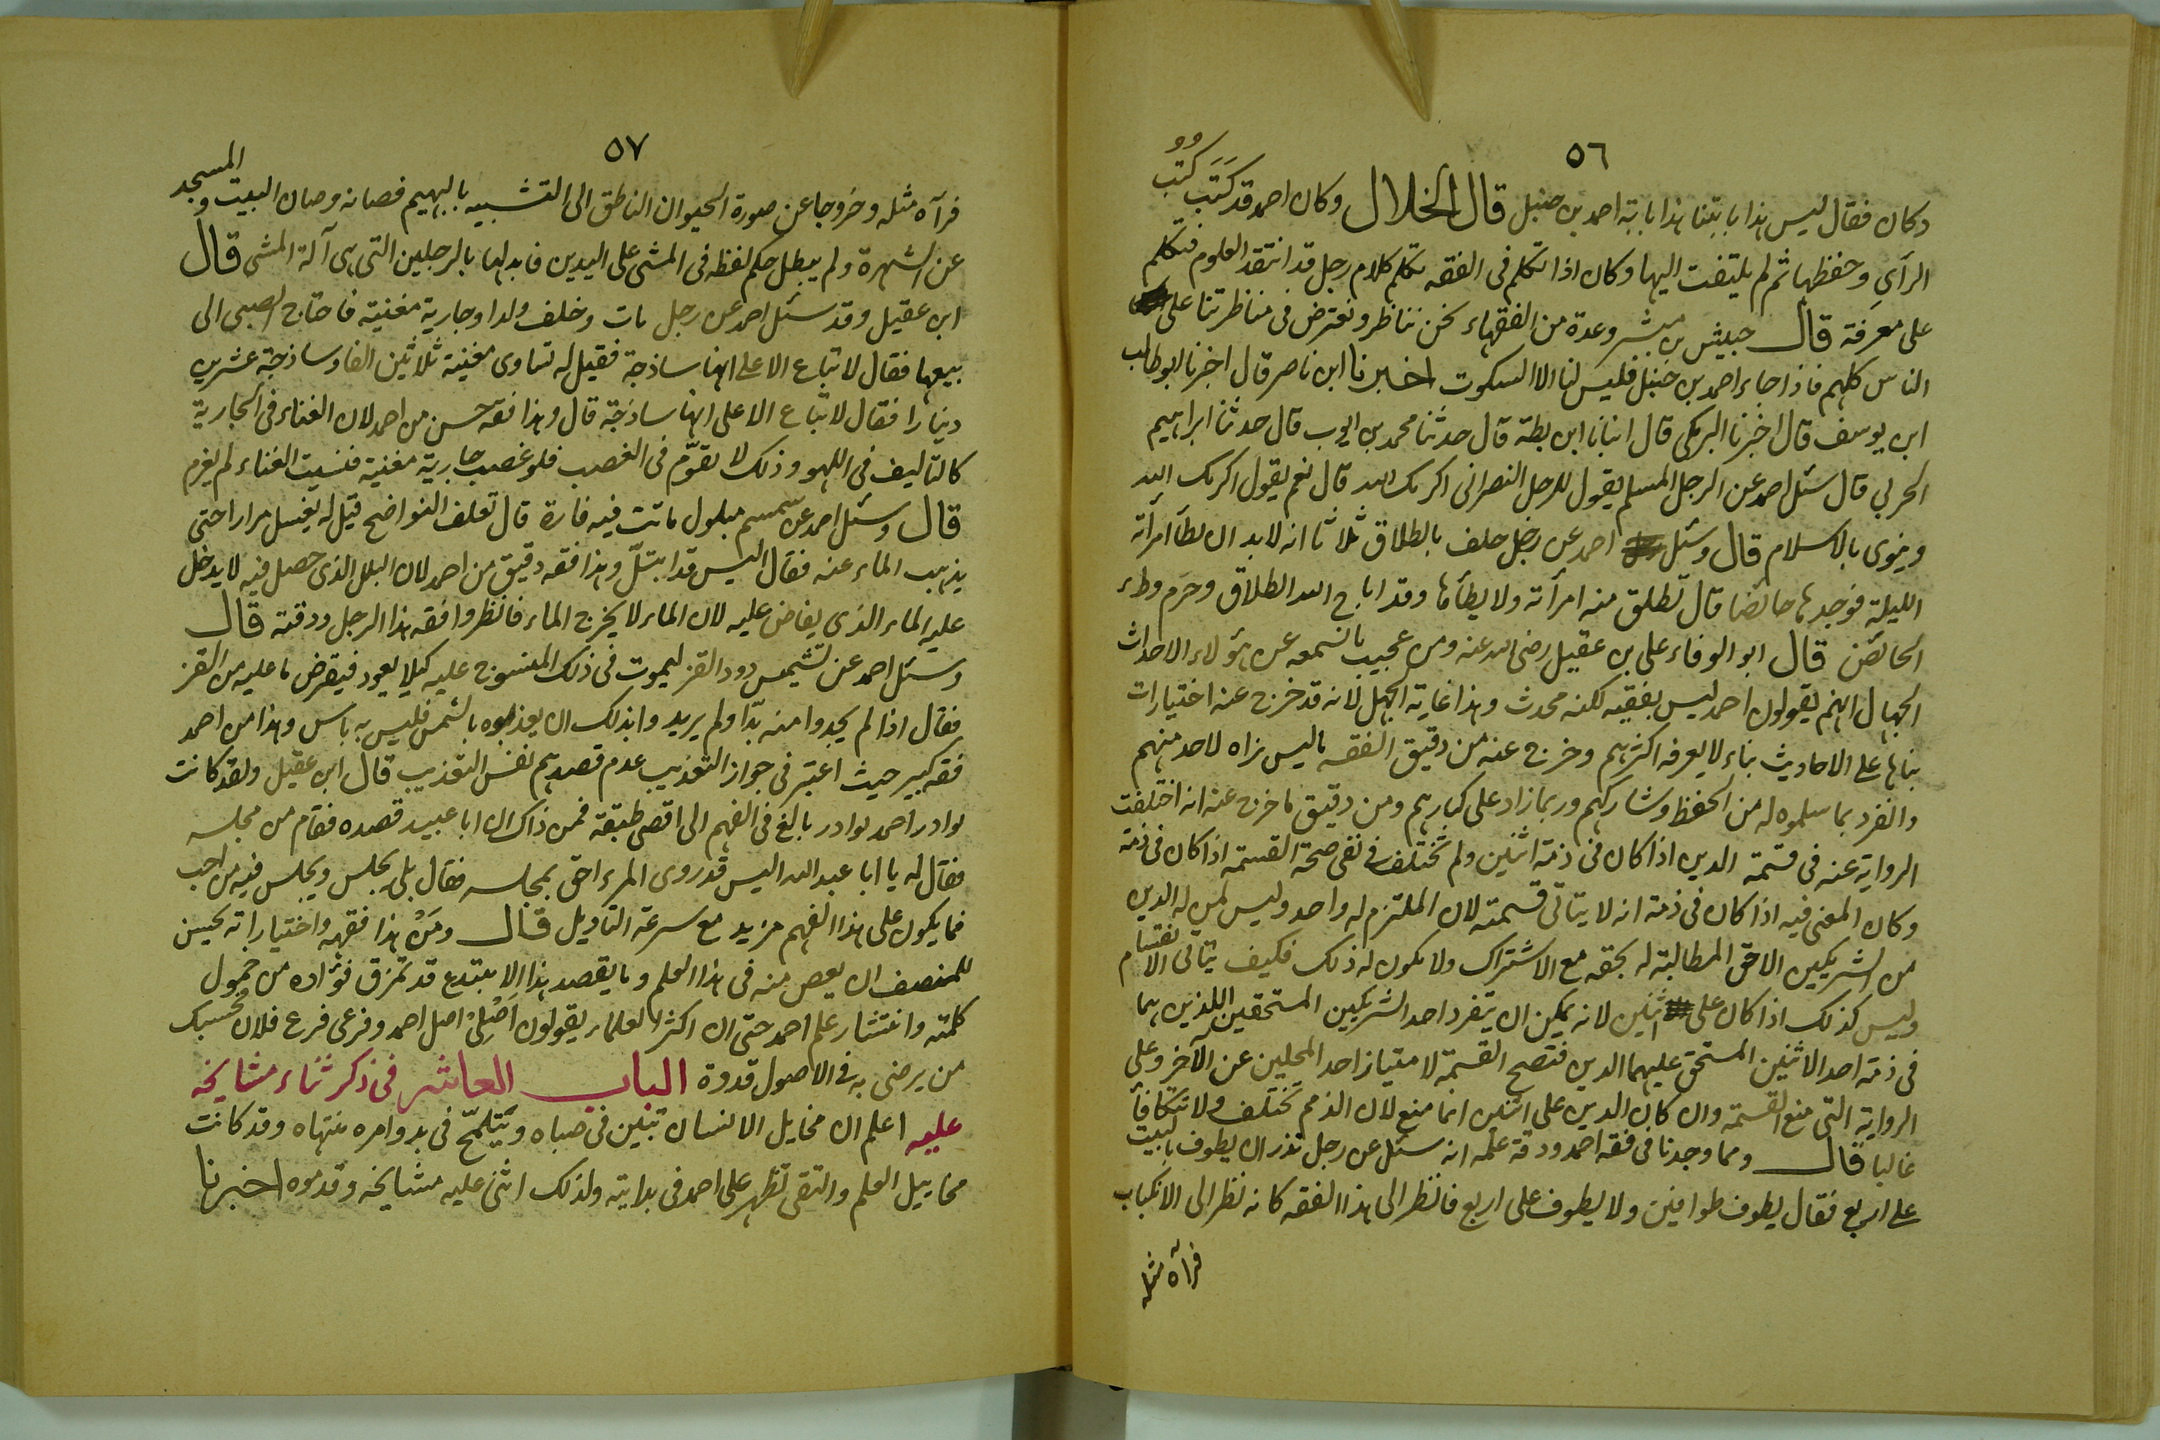 ٥٦
دكان فقال ليس هذا بابتنا هذا بابة احمد بن حنبل قال الخلال وكان احمد قد كَتَب كُتُبَ
الرأي وحفظها ثم لم يلتفت اليها وكان اذا تكلم فى الفقه تكلم كلام رجل قد انتقد العلوم فتكلم
على معرفة قال حبيش بن مبشر وعدة من الفقهاء نحن نناظر ونعترض فى مناظرتنا على
الناس كلهم فاذا جاء احمد بن حنبل فليس لنا الا السكوت اخبرنا ابن ناصر قال اخبرنا ابو طالب
ابن يوسف قال اخبرنا البرمكى قال انبانا ابن بطة قال حدثنا محمد بن ايوب قال حدثنا ابراهيم
الحربي قال سئل احمد عن الرجل المسلم يقول للرجل النصرانى اكرمك الله قال نعم يقول اكرمك الله
وينوى بالاسلام قال وسئل احمد عن رجل حلف بالطلاق ثلاثا انه لابد ان يطأ امرأته
الليلة فوجدها حائضا قال تطلق منه امرأته ولا يطأها وقد اباح الله الطلاق وحرم وطء
الحائض قال ابو الوفاء على بن عقيل رضى الله عنه ومن عجيب ما نسمعه عن هؤلاء الاحداث
الجهال انهم يقولون احمد ليس بفقيه لكنه محدث وهذا غاية الجهل لانه قد خرج عنه اختيارات
بناها على الاحاديث بناء لا يعرفه اكثرهم وخرج عنه من دقيق الفقه ما ليس نراه لاحد منهم
وانفرد بما سلموه له من الحفظ وشاركهم وربما زاد على كبارهم ومن دقيق ما خرج عنه انه اختلفت
الرواية عنه فى قسمة الدين اذا كان فى ذمة اثنين ولم تختلف فى نفى صحة القسمة اذا كان فى ذمة
وكان المعنى فيه اذا كان فى ذمة انه لا يتاتى قسمته لان الملتزم له واحد وليس لمن له الدين
من الشريكين الا حق المطالبة له بحقه مع الاشتراك ولا يكون له ذلك فكيف يتاتى الانقسام
وليس كذلك اذا كان على اثنين لانه يمكن ان يتفرد احد الشريكين المستحقين اللذين بهما
فى ذمة احد الاثنين المستحق عليهما الدين فتصح القسمة لامتياز احد المحلين عن الآخر وعلى
الرواية التى منع القسمة وان كان الدين على اثنين انما منع لان الذمم تختلف ولا تتكافأ
غالبا قال ومما وجدنا فى فقه احمد ودقة علمه انه سئل عن رجل نذر ان يطوف بالبيت
على اربع فقال يطوف طوافين ولا يطوف على اربع فانظر الى هذا الفقه كانه نظر الى الانكباب
فرآه مثله
٥٧
فرآه مثله وخروجا عن صورة الحيوان الناطق الى التشبيه بالبهيم فصانه وصان البيت والمسجد
عن الشهرة ولم يبطل حكم لفظه فى المشى على اليدين فابدلهما بالرجلين التى هى آلة المشى قال
ابن عقيل وقد سئل احمد عن رجل مات وخلف ولدا وجارية مغنية فاحتاج الصبى الى
بيعها فقال لا تباع الا على انها ساذجة فقيل له تساوى مغنية ثلاثين الفا وساذجة عشرين
دينارا فقال لا تباع الا على انها ساذجة قال وهذا فقه حسن من احمد لان الغناء فى الجارية
كالتاليف فى اللهو وذلك لا تقوّم فى الغصب فلو غصب جارية مغنية فنسيت الغناء لم يغرم
قال وسئل احمد عن سمسم مبلول ماتت فيه فارة قال تعلف النواضح قيل له يغسل مرارا حتى
يذهب الماء عنه فقال اليس قد ابتلّ وهذا فقه دقيق من احمد لان البلل الذى حصل فيه لا يدخل
عليه الماء الذى يفاض عليه لان الماء لا يخرج الماء فانظروا فقه هذا الرجل ودقته قال
وسئل احمد عن تشميس دود القز ليموت فى ذلك المنسوج عليه كيلا يعود فيقرض ما عليه من القز
فقال اذا لم يجدوا منه بدّا ولم يريدوا بذلك ان يعذبوه بالشمس فليس به باس وهذا من احمد
فقه كبير حيث اعتبر فى جواز التعذيب عدم قصدهم لنفس التعذيب قال ابن عقيل ولقد كانت
نوادر احمد نوادر بالغ فى الفهم الى اقصى طبقة فمن ذاك ان ابا عبيد قصده فقام من مجلسه
فقال له يا ابا عبد الله اليس قد روى المرء احق بمجلسه فقال بلى يجلس ويجلس فيه من احب
فما يكون على هذا الفهم مزيد مع سرعة التاويل قال ومَنْ هذا فقهه واختياراته يحسن
للمنصف ان يعص منه فى هذا العلم وما يقصد هذا الا مبتدع قد تمزق فؤاده من خمول
كلمته وانتشار علم احمد حتى ان اكثر العلماء يقولون اَصْلِىْ اصل احمد وفرعى فرع فلان فحسبك
من يرضى به فى الاصول قدوة الباب العاشر فى ذكر ثناء مشايخه
عليه اعلم ان مخايل الانسان تبين فى صباه ويَتلَمَّح فى بدو امره منتهاه وقد كانت
مخاييل العلم والتقى تظهر على احمد فى بدايته ولذلك اثنى عليه مشايخه وقدموه اخبرنا